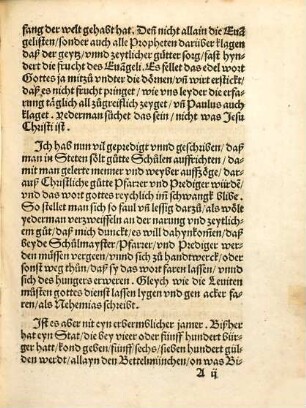 fang der welt gehabt hat. Deñ nicht allain die Euã
gelisten/ sonder auch alle Propheten darüber klagen
daß der geytz/ vnnd zeytlicher gütter sorg/ fast hyn
dert die frucht des Euãgeli. Es fellet das edel wort
Gottes ja mitzů vndter die dömen/ vñ wirt erstickt/
daß es nicht frucht pringet/ wie vns leyder die erfa-
rung täglich all zůgreiflich zeyget/ vñ Paulus auch
klaget. Yederman sůchet das sein/ nicht was Jesu
Christi ist.
Ich hab nun vil gepredigt vnnd geschriben/ daß
man in Steten sölt gůtte Schůlen auffrichten/ da-
mit man gelerte menner vnd weyber auffzöge/ dar-
auß Christliche gůtte Pfarrer vnd Prediger würdẽ/
vnd das wort gottes reychlich im schwangk blibe.
So stellet man sich so faul vñ lessig darzů/ als wölt
yederman verzweiffeln an der narung vnd zeytlich-
em gůt/ daß mich dunckt/ es will dahynkom̃en/ daß
beyde Schůlmayster/ Pfarrer/ vnd Prediger wer-
den müssen vergeen/ vnnd sich zů handtwerck/ oder
sonst weg thůn/ daß sy das wort faren lassen/ vnnd
sich des hungers erweren. Gleych wie die Leuiten
můsten gottes dienst lassen lygen vnd gen acker fa-
ren/ als Nehemias schreibt.
Ist es aber nit eyn erbermblicher jamer. Bißher
hat eyn Stat/ die bey vierer oder fünff hundert bür-
ger hatt/ kond geben/ fünff sechs/ siben hundert gül-
den werdt/ allayn den Bettelmünchen/ on was Bi-
A ij